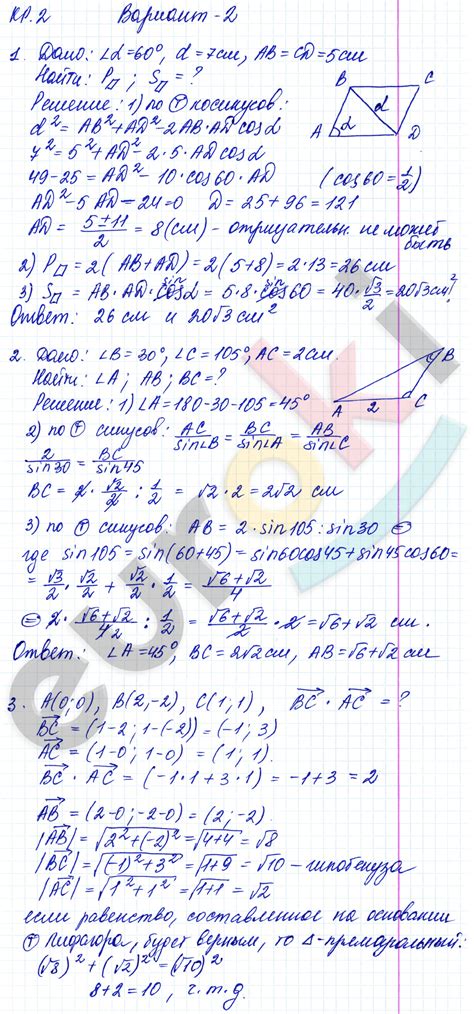 КР.2 Вариант-2
1. Дано: ∠α=60°, d=7см, AB=CD=5см
Найти: P▱ ; S▱ = ?
Решение: 1) по Ⓣ косинусов:
d²=AB²+AD²-2AB·AD cosα
7²=5²+AD²-2·5·AD cosα
49-25=AD²-10·cos60·AD (cos60=1/2)
AD²-5AD-24=0 D=25+96=121
AD=(5±11)/2=8(см)-отрицательн. не может
быть
B C
d
A α D
2) P▱=2(AB+AD)=2(5+8)=2·13=26см
3) S▱=AB·AD·sinα=5·8·sin60=40·√3/2=20√3см²
Ответ: 26см и 20√3см²
2. Дано: ∠B=30°, ∠C=105°, AC=2см.
Найти: ∠A; AB; BC=?
Решение: 1) ∠A=180-30-105=45°
B
A 2 C
2) по Ⓣ синусов: AC/sin∠B=BC/sin∠A=AB/sin∠C
2/sin30=BC/sin45
BC=2·√2/2:1/2=√2·2=2√2 см
3) по Ⓣ синусов: AB=2·sin105:sin30 ⊜
где sin105=sin(60+45)=sin60cos45+sin45cos60=
=√3/2·√2/2+√2/2·1/2=(√6+√2)/4
⊜ 2·(√6+√2)/4 2:1/2=(√6+√2)/2·2=√6+√2 см.
Ответ: ∠A=45°, BC=2√2см, AB=√6+√2см
3. A(0;0), B(2,-2), C(1;1), BC·AC=?
BC=(1-2;1-(-2))=(-1;3)
AC=(1-0;1-0)=(1;1).
BC·AC=(-1·1+3·1)=-1+3=2
AB=(2-0;-2-0)=(2;-2)
|AB|=√(2²+(-2)²)=√(4+4)=√8
|BC|=√((-1)²+3²)=√(1+9)=√10-гипотенуза
|AC|=√(1²+1²)=√(1+1)=√2
если равенство, составленное на основании
Ⓣ Пифагора, будет верным, то Δ-прямоугольный:
(√8)²+(√2)²=(√10)²
8+2=10, ч.т.д.
euroki